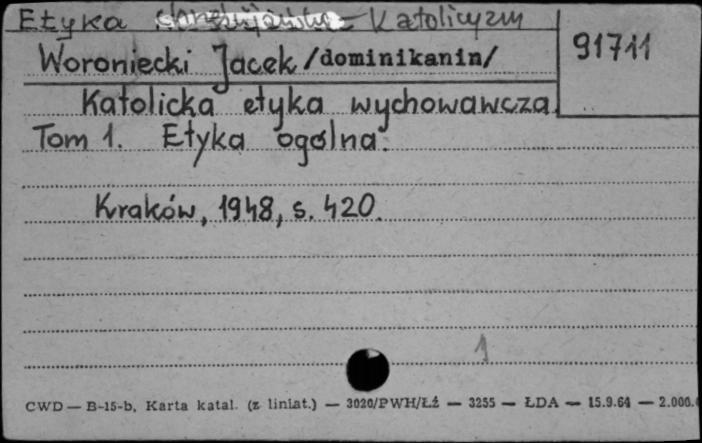 Etyka chrześcijańska - Katolicyzm
91711
Woroniecki Jacek /dominikanin/
Katolicka etyka wychowawcza.
Tom 1. Etyka ogólna.
Kraków, 1948, s. 420.
1
CWD — B-15-b, Karta katal. (z liniat.) — 3020/PWH/Łź — 3255 — ŁDA — 15.9.64 — 2.000.